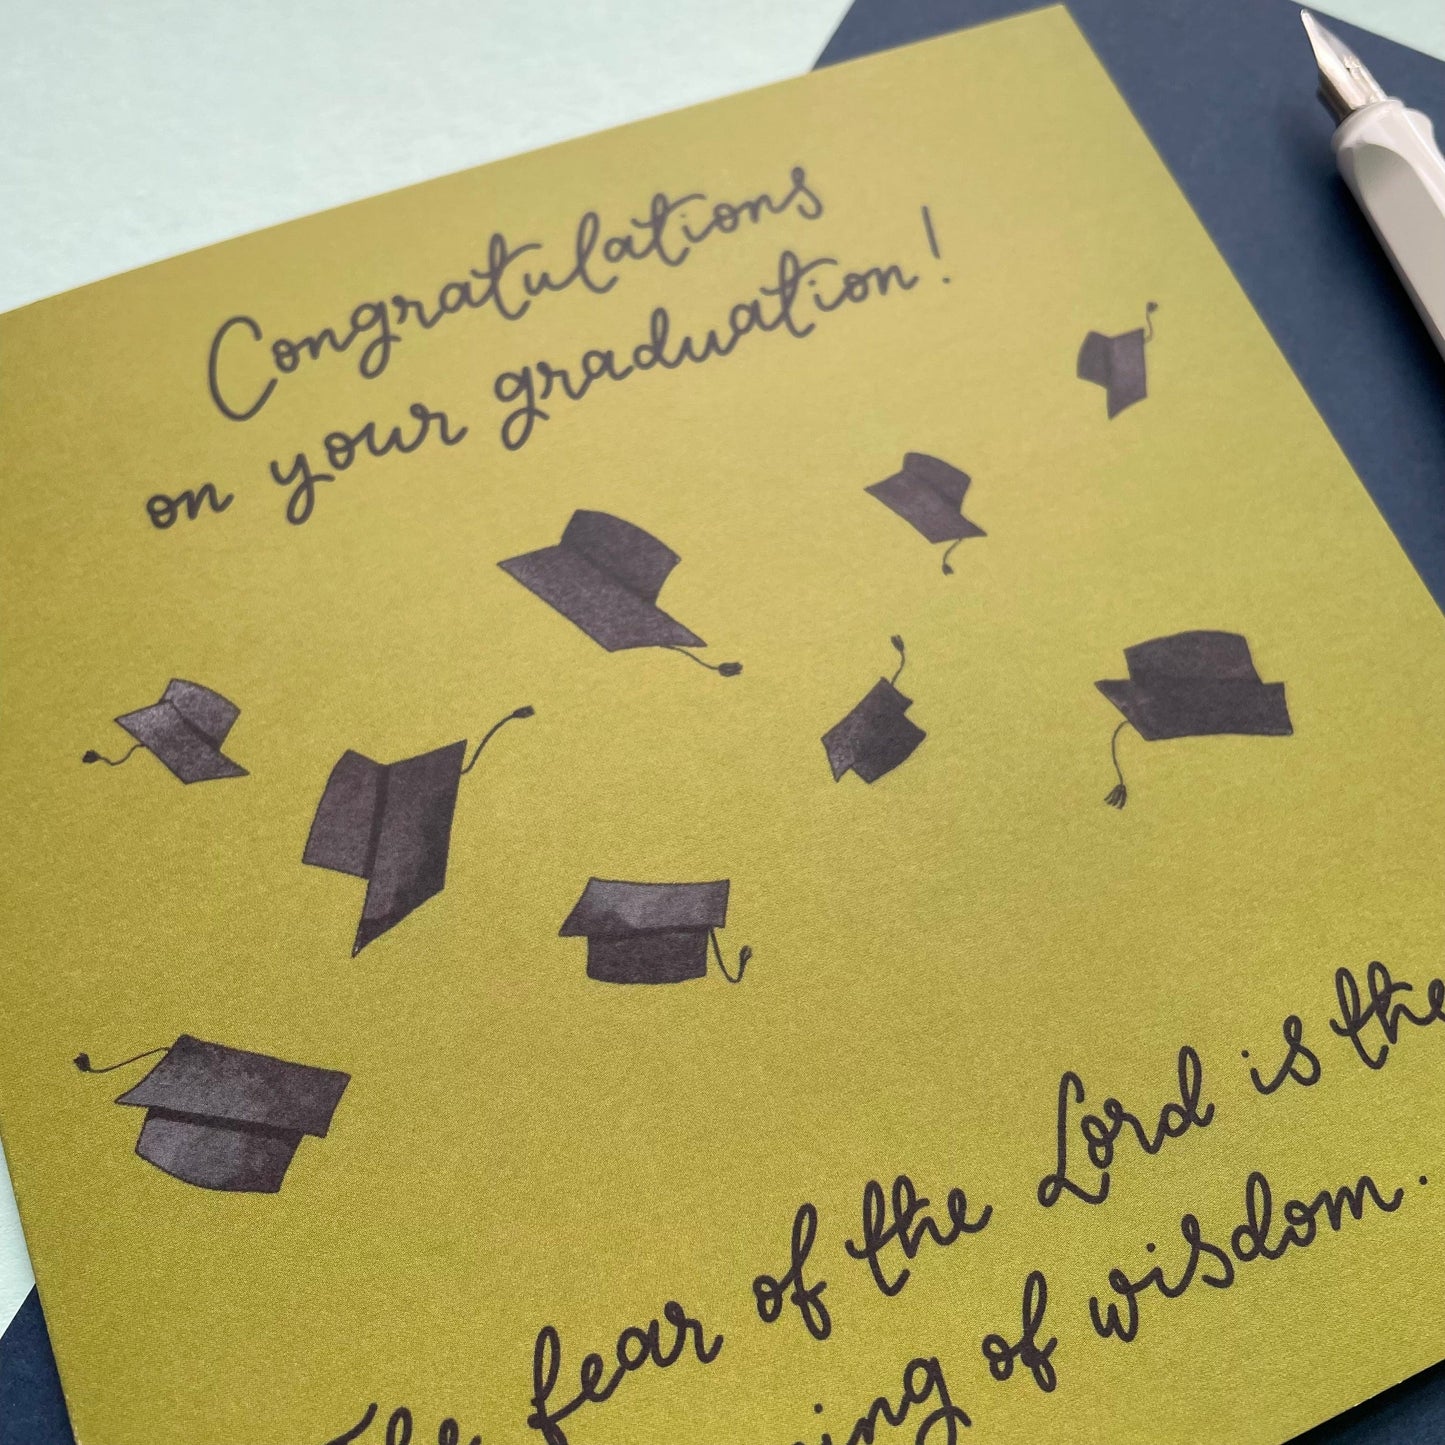 Congratulations
on your graduation!
The fear of the Lord is the
of wisdom.